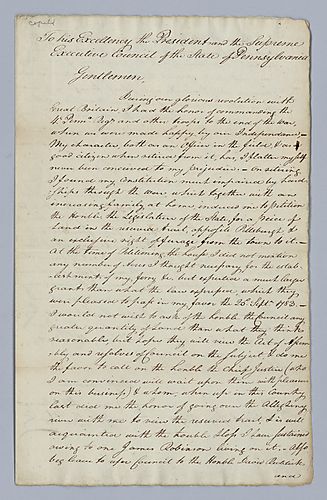 To his Excellency the President and the Supreme
Executive Council of the State of Pennsylvania
Gentlemen,
During our glorious revolution with
Great Britain I had the honor of commanding the
4th Penn. Regt and other troops to the end of the war,
when we were made happy by our Independence
My character both as an Officer in the field, & as a
good citizen when retired from it, has, I flatter myself
never been conceived to my prejudice. On retiring
I found my Constitution much impaired by hard
ships through the war which together with an
increasing family at home induced me to petition
the Honble the Legislature of the State, for a piece of
Land in the reserved tract opposite Pittsburgh &
an exclusive right of Ferryage from the town to it.
At the time of Petitioning the house I did not mention
any number of Acres I thought necessary for the estab
lishment of my ferry & last expected a much larger
grant than what the law expresses which they
were pleased to pass in my favor the 25. Sept. 1783
I would not wish to ask of the honble the Council any
greater quantity of Land than what they think
reasonable, but hope they will view the Act of Assem
bly and resolves of Council on the subject & do me
the favor to call on the honble the Chief Justice (who
I am convinced will wait upon them with pleasure
on this business) & whom, when up in this country
last did me the honor of going over the Alleghany
river with me to view the reserved tract, & is well
acquainted with the trouble & loss I have sustained
owing to one James Robinson living on it. Also
beg leave to refer Council to the Honble
and